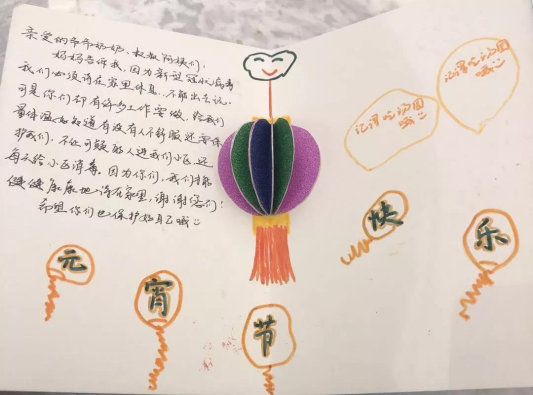 亲爱的爷爷奶奶、叔叔阿姨们:
妈妈告诉我,因为新型冠状病毒
我们必须待在家里休息,不能出去玩。
可是你们却有许多工作要做,给我们
量体温和知道有没有人不舒服还要保
护我们,不让可疑的人进我们小区,还
每天给小区消毒。因为你们,我们才能
健健康康地待在家里,谢谢您们!
希望你们也保护好自己哦
记得吃汤圆
哦
记得吃汤圆
哦
元
宵
节
快
乐